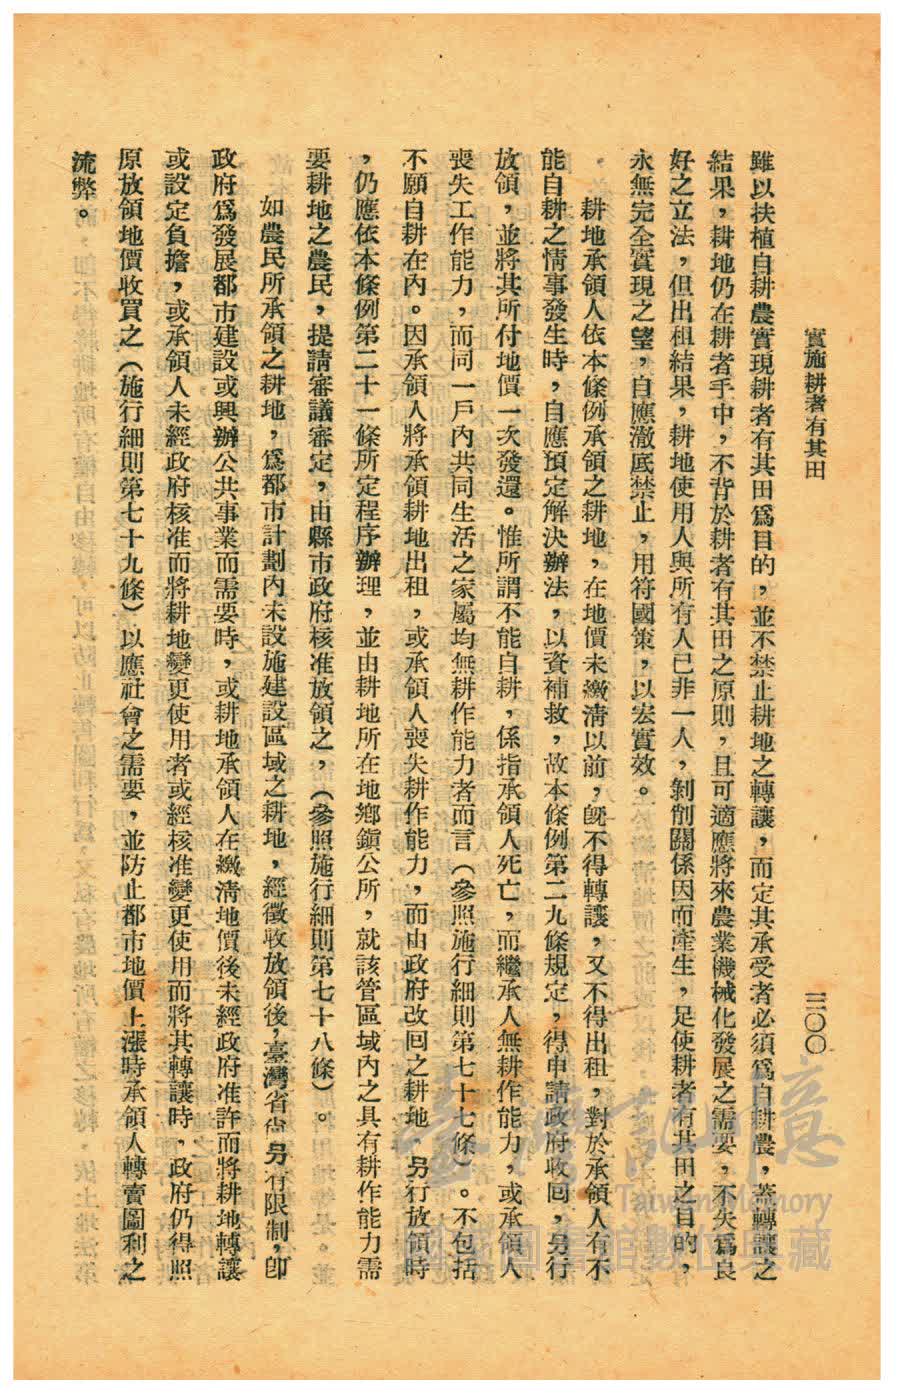 實施耕者有其田
三〇〇
雖以扶植自耕農實現耕者有其田爲目的，並不禁止耕地之轉讓，而定其承受者必須爲自耕農，蓋轉讓之
結果，耕地仍在耕者手中，不背於耕者有其田之原則，且可適應將來農業機械化發展之需要，不失爲良
好之立法，但出租結果，耕地使用人與所有人已非一人，剝削關係因而產生，足使耕者有其田之目的，
永無完全實現之望，自應澈底禁止，用符國策，以宏實效。
耕地承領人依本條例承領之耕地，在地價未繳淸以前，旣不得轉讓，又不得出租，對於承領人有不
能自耕之情事發生時，自應預定解決辦法，以資補救，故本條例第二九條規定，得申請政府收回，另行
放領，並將其所付地價一次發還。惟所謂不能自耕，係指承領人死亡，而繼承人無耕作能力，或承領人
喪失工作能力，而同一戶內共同生活之家屬均無耕作能力者而言（參照施行細則第七十七條）。不包括
不願自耕在內。因承領人將承領耕地出租，或承領人喪失耕作能力，而由政府改回之耕地，另行放領時
，仍應依本條例第二十一條所定程序辦理，並由耕地所在地鄉鎭公所，就該管區域內之具有耕作能力需
要耕地之農民，提請審議審定，由縣市政府核准放領之，（參照施行細則第七十八條）。
如農民所承領之耕地，爲都市計劃內未設施建設區域之耕地，經徵收放領後，臺灣省尙另有限制，卽
政府爲發展都市建設或興辦公共事業而需要時，或耕地承領人在繳淸地價後未經政府准許而將耕地轉讓
或設定負擔，或承領人未經政府核准而將耕地變更使用者或經核准變更使用而將其轉讓時，政府仍得照
原放領地價收買之（施行細則第七十九條）以應社會之需要，並防止都市地價上漲時承領人轉賣圖利之
流弊。
臺灣記憶
Taiwan Memory
國家圖書館數位典藏